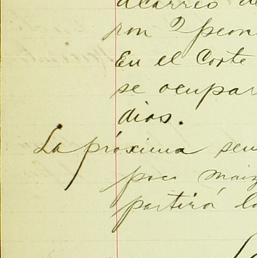 acarreo de
ron 2 peon
En el Corte
se ocupar
dias.
La próxima sem
poco maiz
partirá la